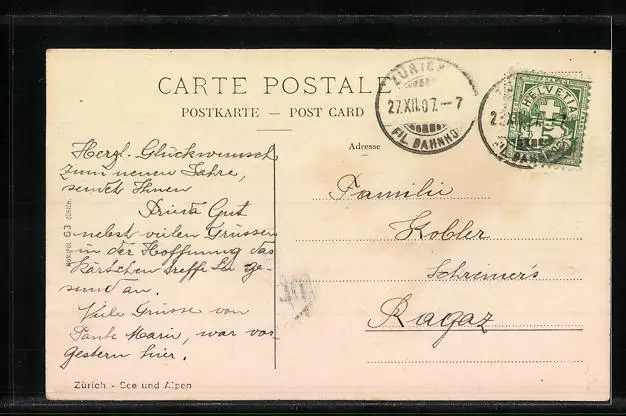 CARTE POSTALE
POSTKARTE — POST CARD
ZÜRICH
27.XII.07.—7
FIL. BAHNHO
HELVETIA
FIL. BAHNHO
Adresse
Herzl. Glückwunsch
zum neuen Jahre,
sendet Ihnen
Gut
nebst vielen Grüssen
in der Hoffnung das
Kärtchen treffe Sie ge-
sund an.
Viele Grüsse von
Tante Marie, war vor-
gestern hier.
Familie
Kobler
Schreiner's
Ragaz
63 ZÜRICH.
Zürich - See und Alpen